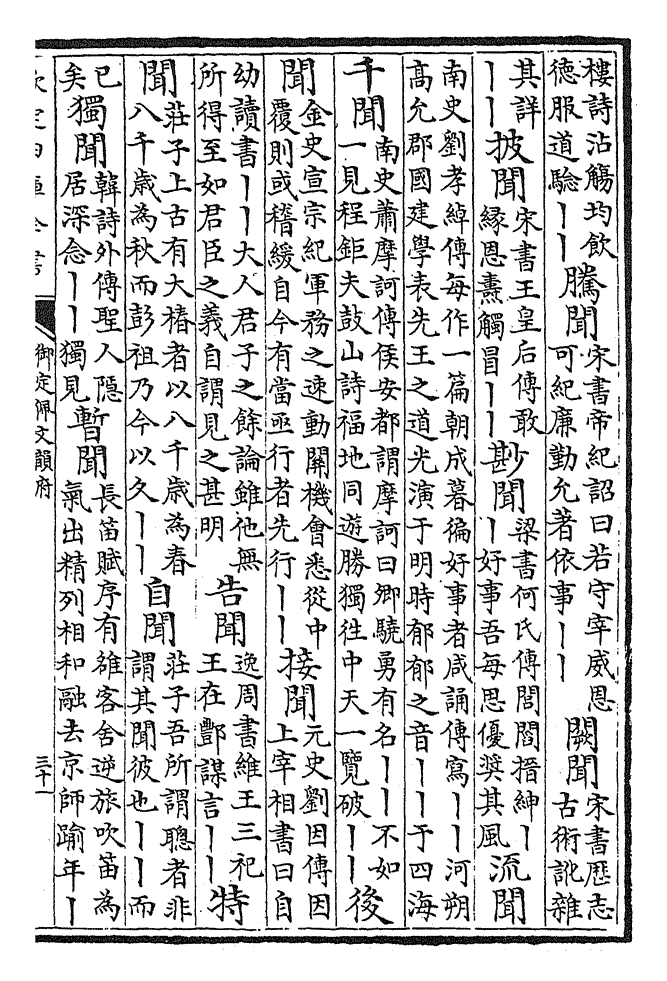 樓詩沾觴均飲
德服道驗〡〡
騰聞
宋書帝紀詔曰若守宰威恩
可紀廉勤允著依事〡〡
闕聞
宋書歷志
古術訛雜
其詳
〡〡
披聞
宋書王皇后傳敢
緣恩熏觸冒〡〡
尠聞
梁書何氏傳閭閻搢紳〡
〡好事吾每思優奬其風
流聞
南史劉孝綽傳每作一篇朝成暮徧好事者咸誦傳寫〡〡河朔
高允郡國建學表先王之道光演于明時郁郁之音〡〡于四海
千聞
南史蕭摩訶傳侯安都謂摩訶曰卿驍勇有名〡〡不如
一見程鉅夫鼓山詩福地同遊勝獨往中天一覽破〡〡
後聞
金史宣宗紀軍務之速動關機會悉從中
覆則或稽緩自今有當亟行者先行〡〡
接聞
元史劉因傳因
上宰相書曰自
幼讀書〡〡大人君子之餘論雖他無
所得至如君臣之義自謂見之甚明
告聞
逸周書維王三祀
王在酆謀言〡〡
特聞
莊子上古有大椿者以八千歲為春
八千歲為秋而彭祖乃今以久〡〡
自聞
莊子吾所謂聰者非
謂其聞彼也〡〡而
已
矣
獨聞
韓詩外傳聖人隱
居深念〡〡獨見
暫聞
長笛賦序有雒客舍逆旅吹笛為
氣出精列相和融去京師踰年〡
御定佩文韻府
三十一